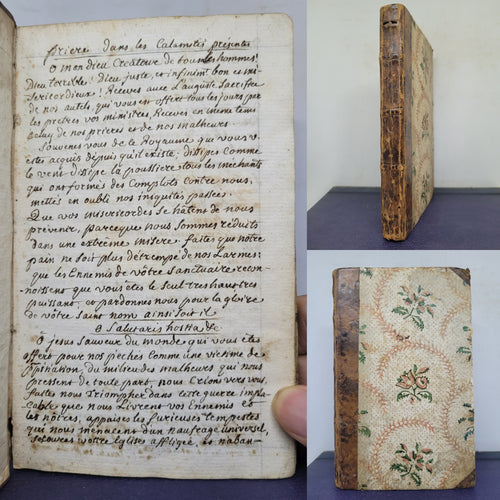 Priere dans les Calamités présentes
O mon Dieu Createur de tous les hommes!
Dieu terrible! Dieu juste, et infinimt bon et mi-
sericordieux! Recevez avec L'auguste Sacrifice
de nos autels, qui vous est offert tous les jours par
les pretres vos ministres, Recevez en meme tems
celuy de nos prieres et de nos malheurs.
Souvenez vous de le Royaume qui vous
etes acquis depuis qu'il existe; dissipez comme
le vent dissipe la poussiere tous les mechants
qui ont formés des Complots contre nous,
mettés en oubli nos iniquités passées.
Que vos misericordes se hâtent de nous
prevenir, parceque nous sommes réduits
dans une extreme misere. faites que nôtre
pain ne soit plus détrempé de nos Larmes:
que les Ennemis de vôtre Sanctuaire recon-
noissent que vous etes le seul tres haut tres
puissant, et pardonnez nous pour la gloire
de vôtre Saint nom ainsi soit il
O Salutaris hostia &c
O jesus Sauveur du monde qui vous etes
offert pour nos péchés comme une victime de
propitiation, du milieu des malheurs qui nous
pressent de toute part, nous Crions vers vous,
faites nous triompher dans cette guerre impla-
cable que nous Livrent vos Ennemis et
les nôtres, appaisés les furieuses tempestes
qui nous menacent d'un naufrage universel,
secourés vôtre Eglise affligée, et n'aban-